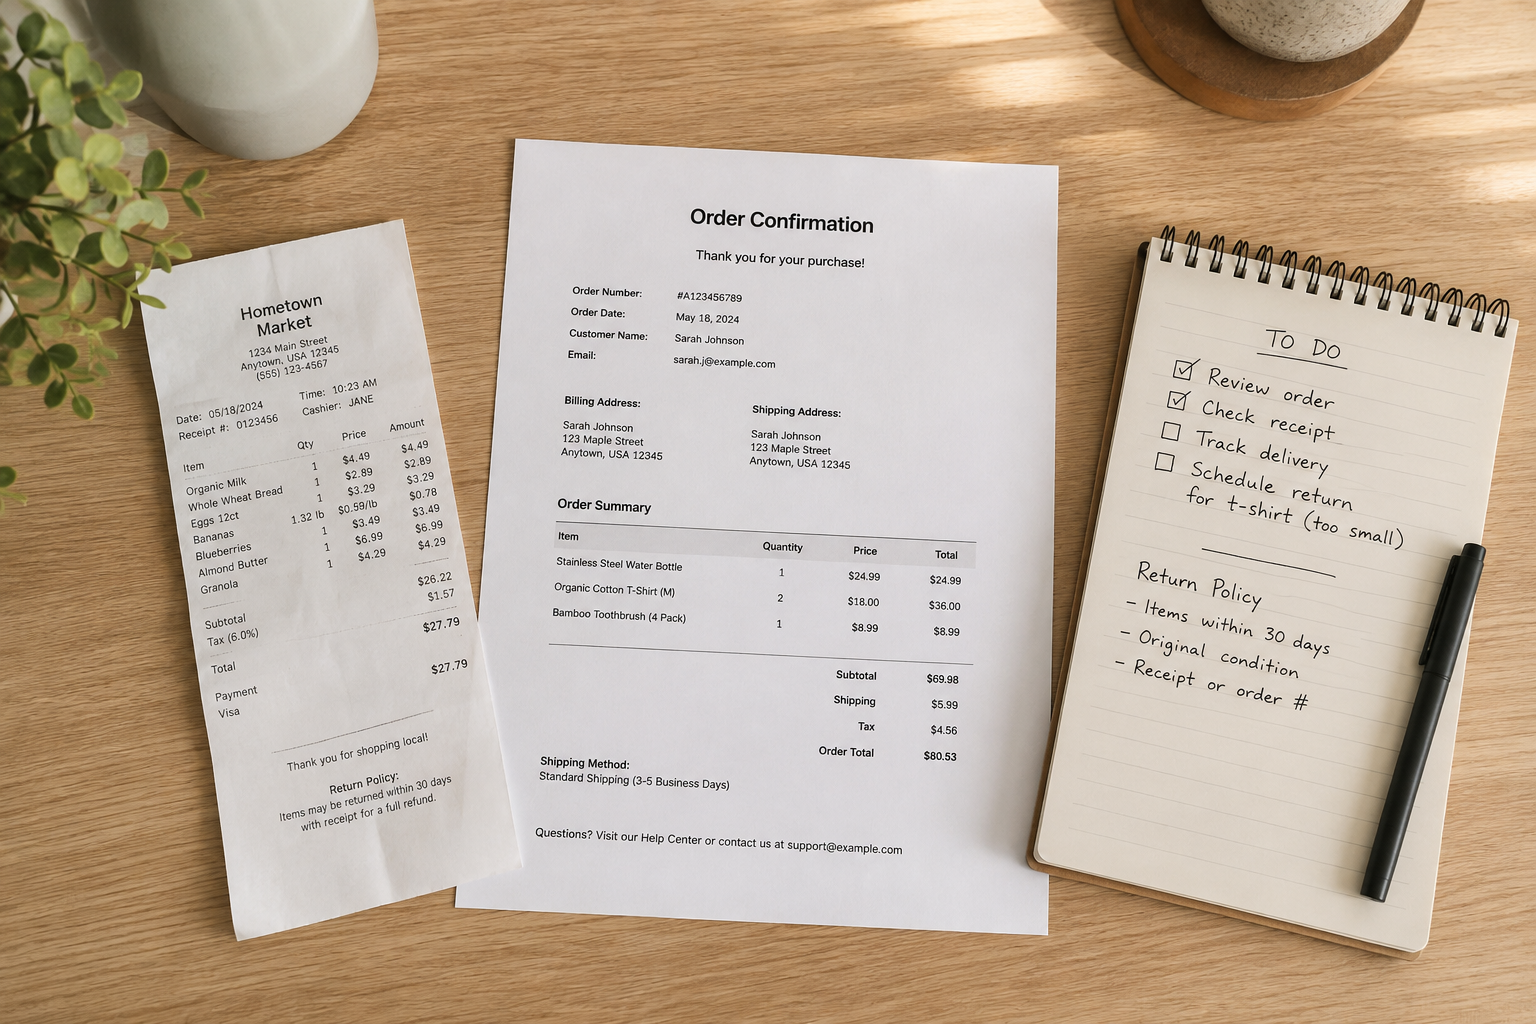 Hometown
Market
1234 Main Street
Anytown, USA 12345
(555) 123-4567
Date: 05/18/2024 Time: 10:23 AM
Receipt #: 0123456 Cashier: JANE
Item Qty Price Amount
Organic Milk 1 $4.49 $4.49
Whole Wheat Bread 1 $2.89 $2.89
Eggs 12ct 1 $3.29 $3.29
Bananas 1.32 lb $0.59/lb $0.78
Blueberries 1 $3.49 $3.49
Almond Butter 1 $6.99 $6.99
Granola 1 $4.29 $4.29
Subtotal $26.22
Tax (6.0%) $1.57
Total $27.79
Payment
Visa $27.79
Thank you for shopping local!
Return Policy:
Items may be returned within 30 days
with receipt for a full refund.
Order Confirmation
Thank you for your purchase!
Order Number: #A123456789
Order Date: May 18, 2024
Customer Name: Sarah Johnson
Email: sarah.j@example.com
Billing Address:
Sarah Johnson
123 Maple Street
Anytown, USA 12345
Shipping Address:
Sarah Johnson
123 Maple Street
Anytown, USA 12345
Order Summary
Item Quantity Price Total
Stainless Steel Water Bottle 1 $24.99 $24.99
Organic Cotton T-Shirt (M) 2 $18.00 $36.00
Bamboo Toothbrush (4 Pack) 1 $8.99 $8.99
Subtotal $69.98
Shipping $5.99
Tax $4.56
Order Total $80.53
Shipping Method:
Standard Shipping (3-5 Business Days)
Questions? Visit our Help Center or contact us at support@example.com
TO DO
Review order
Check receipt
Track delivery
Schedule return
for t-shirt (too small)
Return Policy
- Items within 30 days
- Original condition
- Receipt or order #